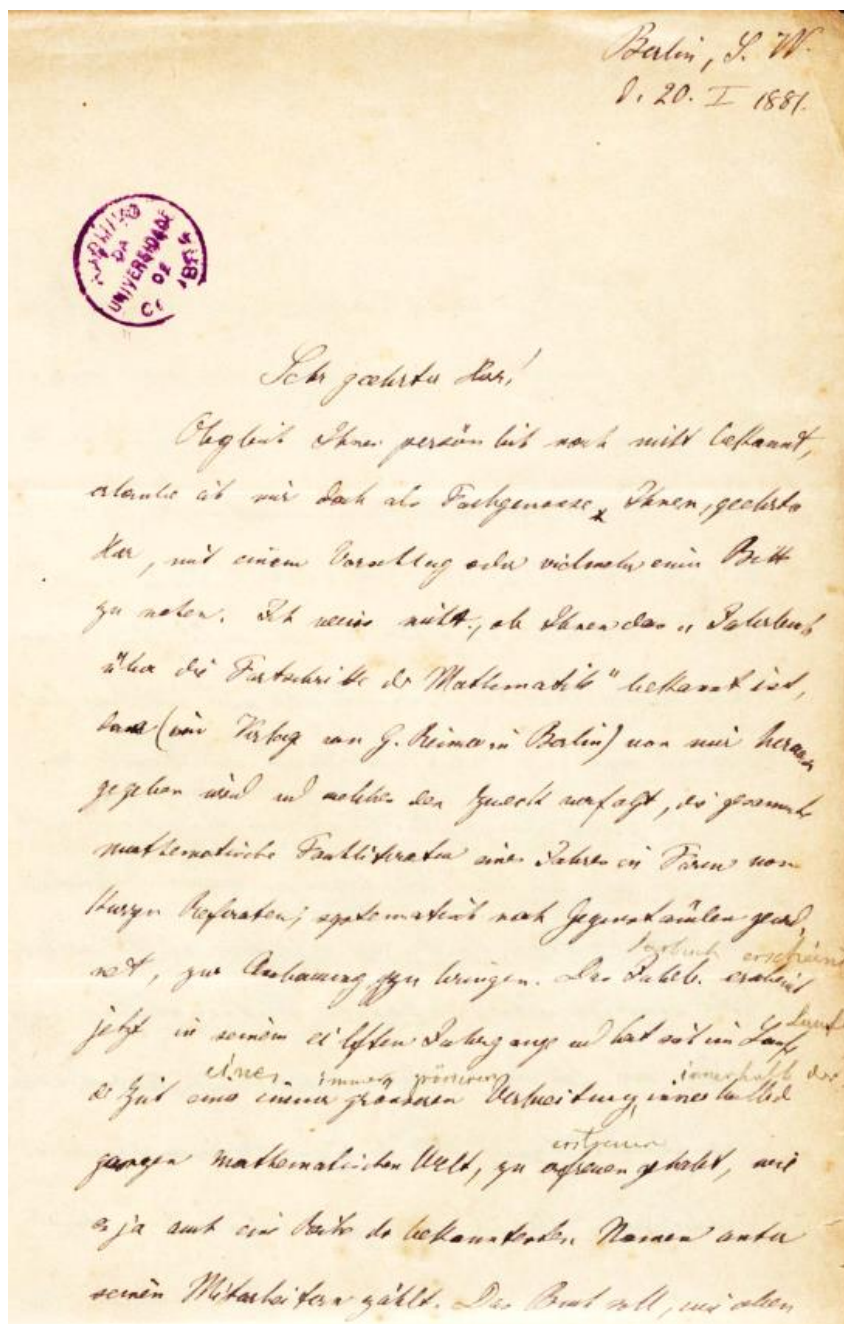 Berlin, S. W.
d. 20. I 1881.
ARCHIVO
DA
UNIVERSIDADE
DE
Sehr geehrter Herr!
Obgleich Ihnen persönlich noch nicht bekannt,
erlaube ich mir doch als Fachgenosse, Ihnen, geehrter
Herr, mit einem Vorschlag oder vielmehr einer Bitte
zu nahen. Ich weiss nicht, ob Ihnen das „Jahrbuch
über die Fortschritte der Mathematik“ bekannt ist,
das (im Verlag von G. Reimer in Berlin) von mir heraus
gegeben wird und welches den Zweck verfolgt, die gesammte
mathematische Fachliteratur eines Jahres in Form von
kurzen Referaten, systematisch nach Gegenständen geord
net, zur Anschauung zu bringen. Das Jahrb. erscheint
Jahrbuch erscheint
jetzt in seinem eilften Jahrgange und hat seit im Laufe
Lauf
der Zeit eine immer grösseren Verbreitung, innerhalb d
einer immer grösseren innerhalb der
ganzen mathematischen Welt, zu erfreuen gehabt, wie
es ja auch eine Reihe der bekanntesten Namen unter
seinen Mitarbeitern zählt. Das Buch soll, wie oben